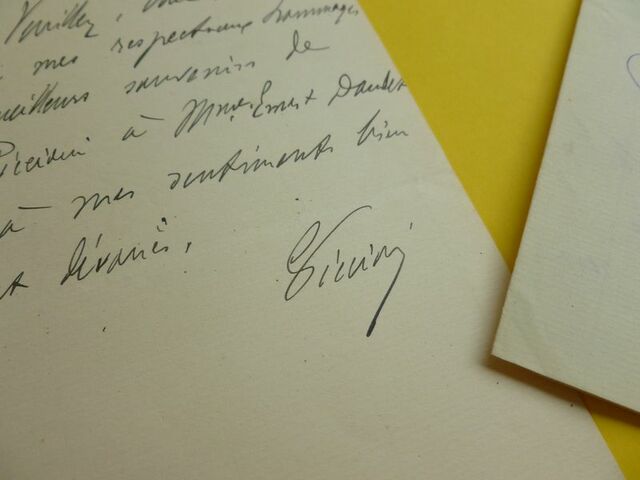 Veuillez,
mes respectueux hommages
meilleurs souvenirs de
Piccioni à Mme Ernest Daudet
à mes sentiments bien
dévoués.
Piccioni